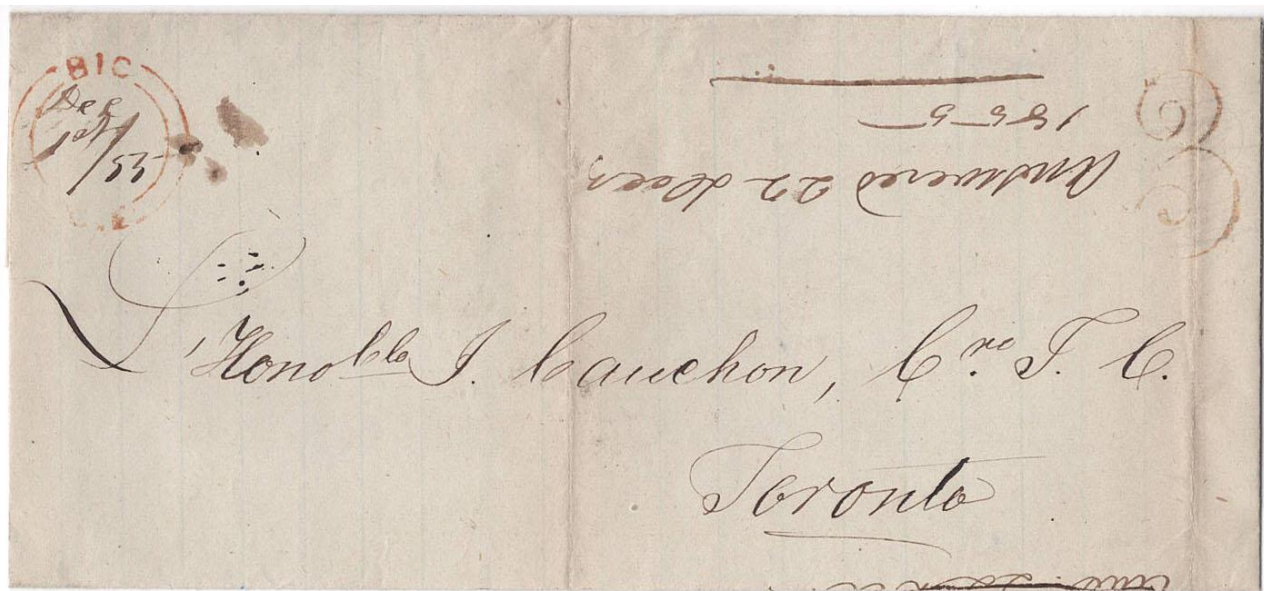 BIC
Dec
1st/
/55
C.E
Answered 22 Decr
1855
L'Honoble J. Cauchon, Cre T. C.
Toronto